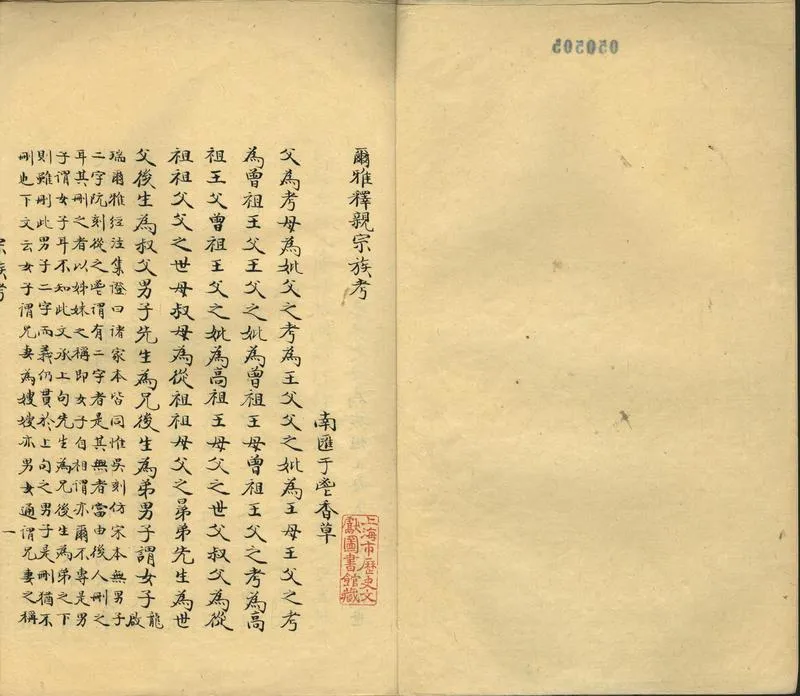 050505
爾雅釋親宗族考
南匯于鬯香草
上海市歷史文
獻圖書館藏
父為考母為妣父之考為王父父之妣為王母王父之考
為曾祖王父王父之妣為曾祖王母曾祖王父之考為高
祖王父曾祖王父之妣為高祖王母父之世父叔父為從
祖祖父父之世母叔母為從祖祖母父之晜弟先生為世
父後生為叔父男子先生為兄後生為弟男子謂女子龍啟
瑞爾雅經注集證曰諸家本皆同惟吳刻仿宋本無男子
二字阮刻從之鬯謂有二字者是其無者當由後人刪之
耳其刪之者以姊妹之稱即女子自相謂亦爾不專是男
子謂女子耳不知此文承上句先生為兄後生為弟之下
則雖刪此男子二字而義仍貫於上句之男子是刪猶不
刪也下文云女子謂兄妻為嫂嫂亦男女通謂兄妻之稱
宗族考
一